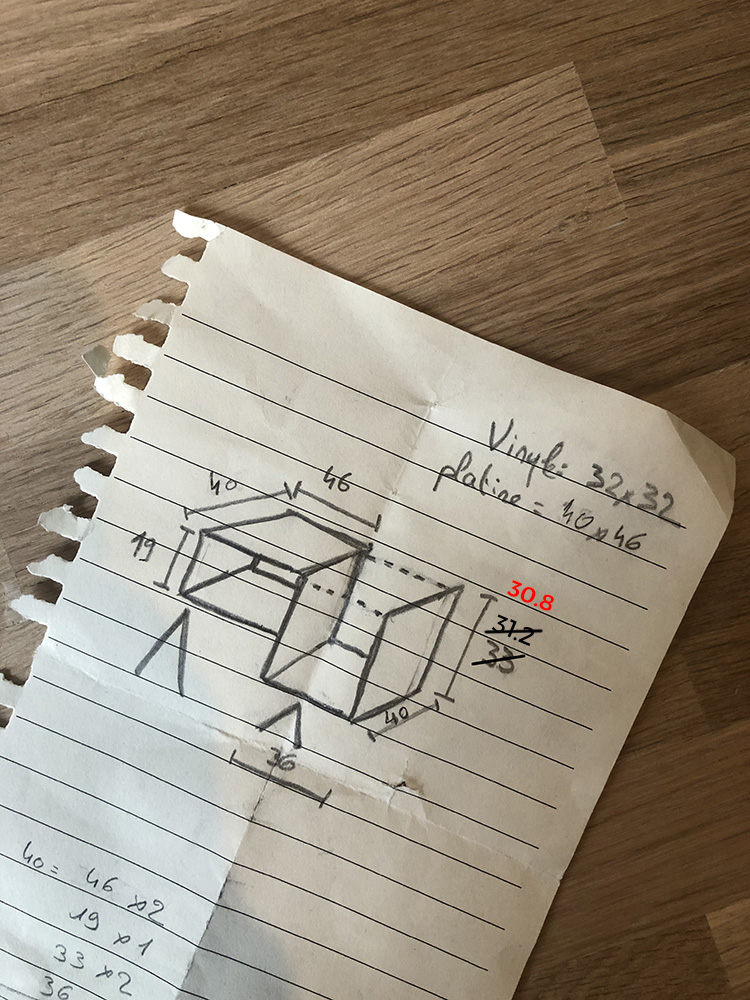 Vinyle: 32x32
platine = 40x46
40
46
19
30.8
31.2
33
40
36
40= 46 x2
19 x1
33 x2
36